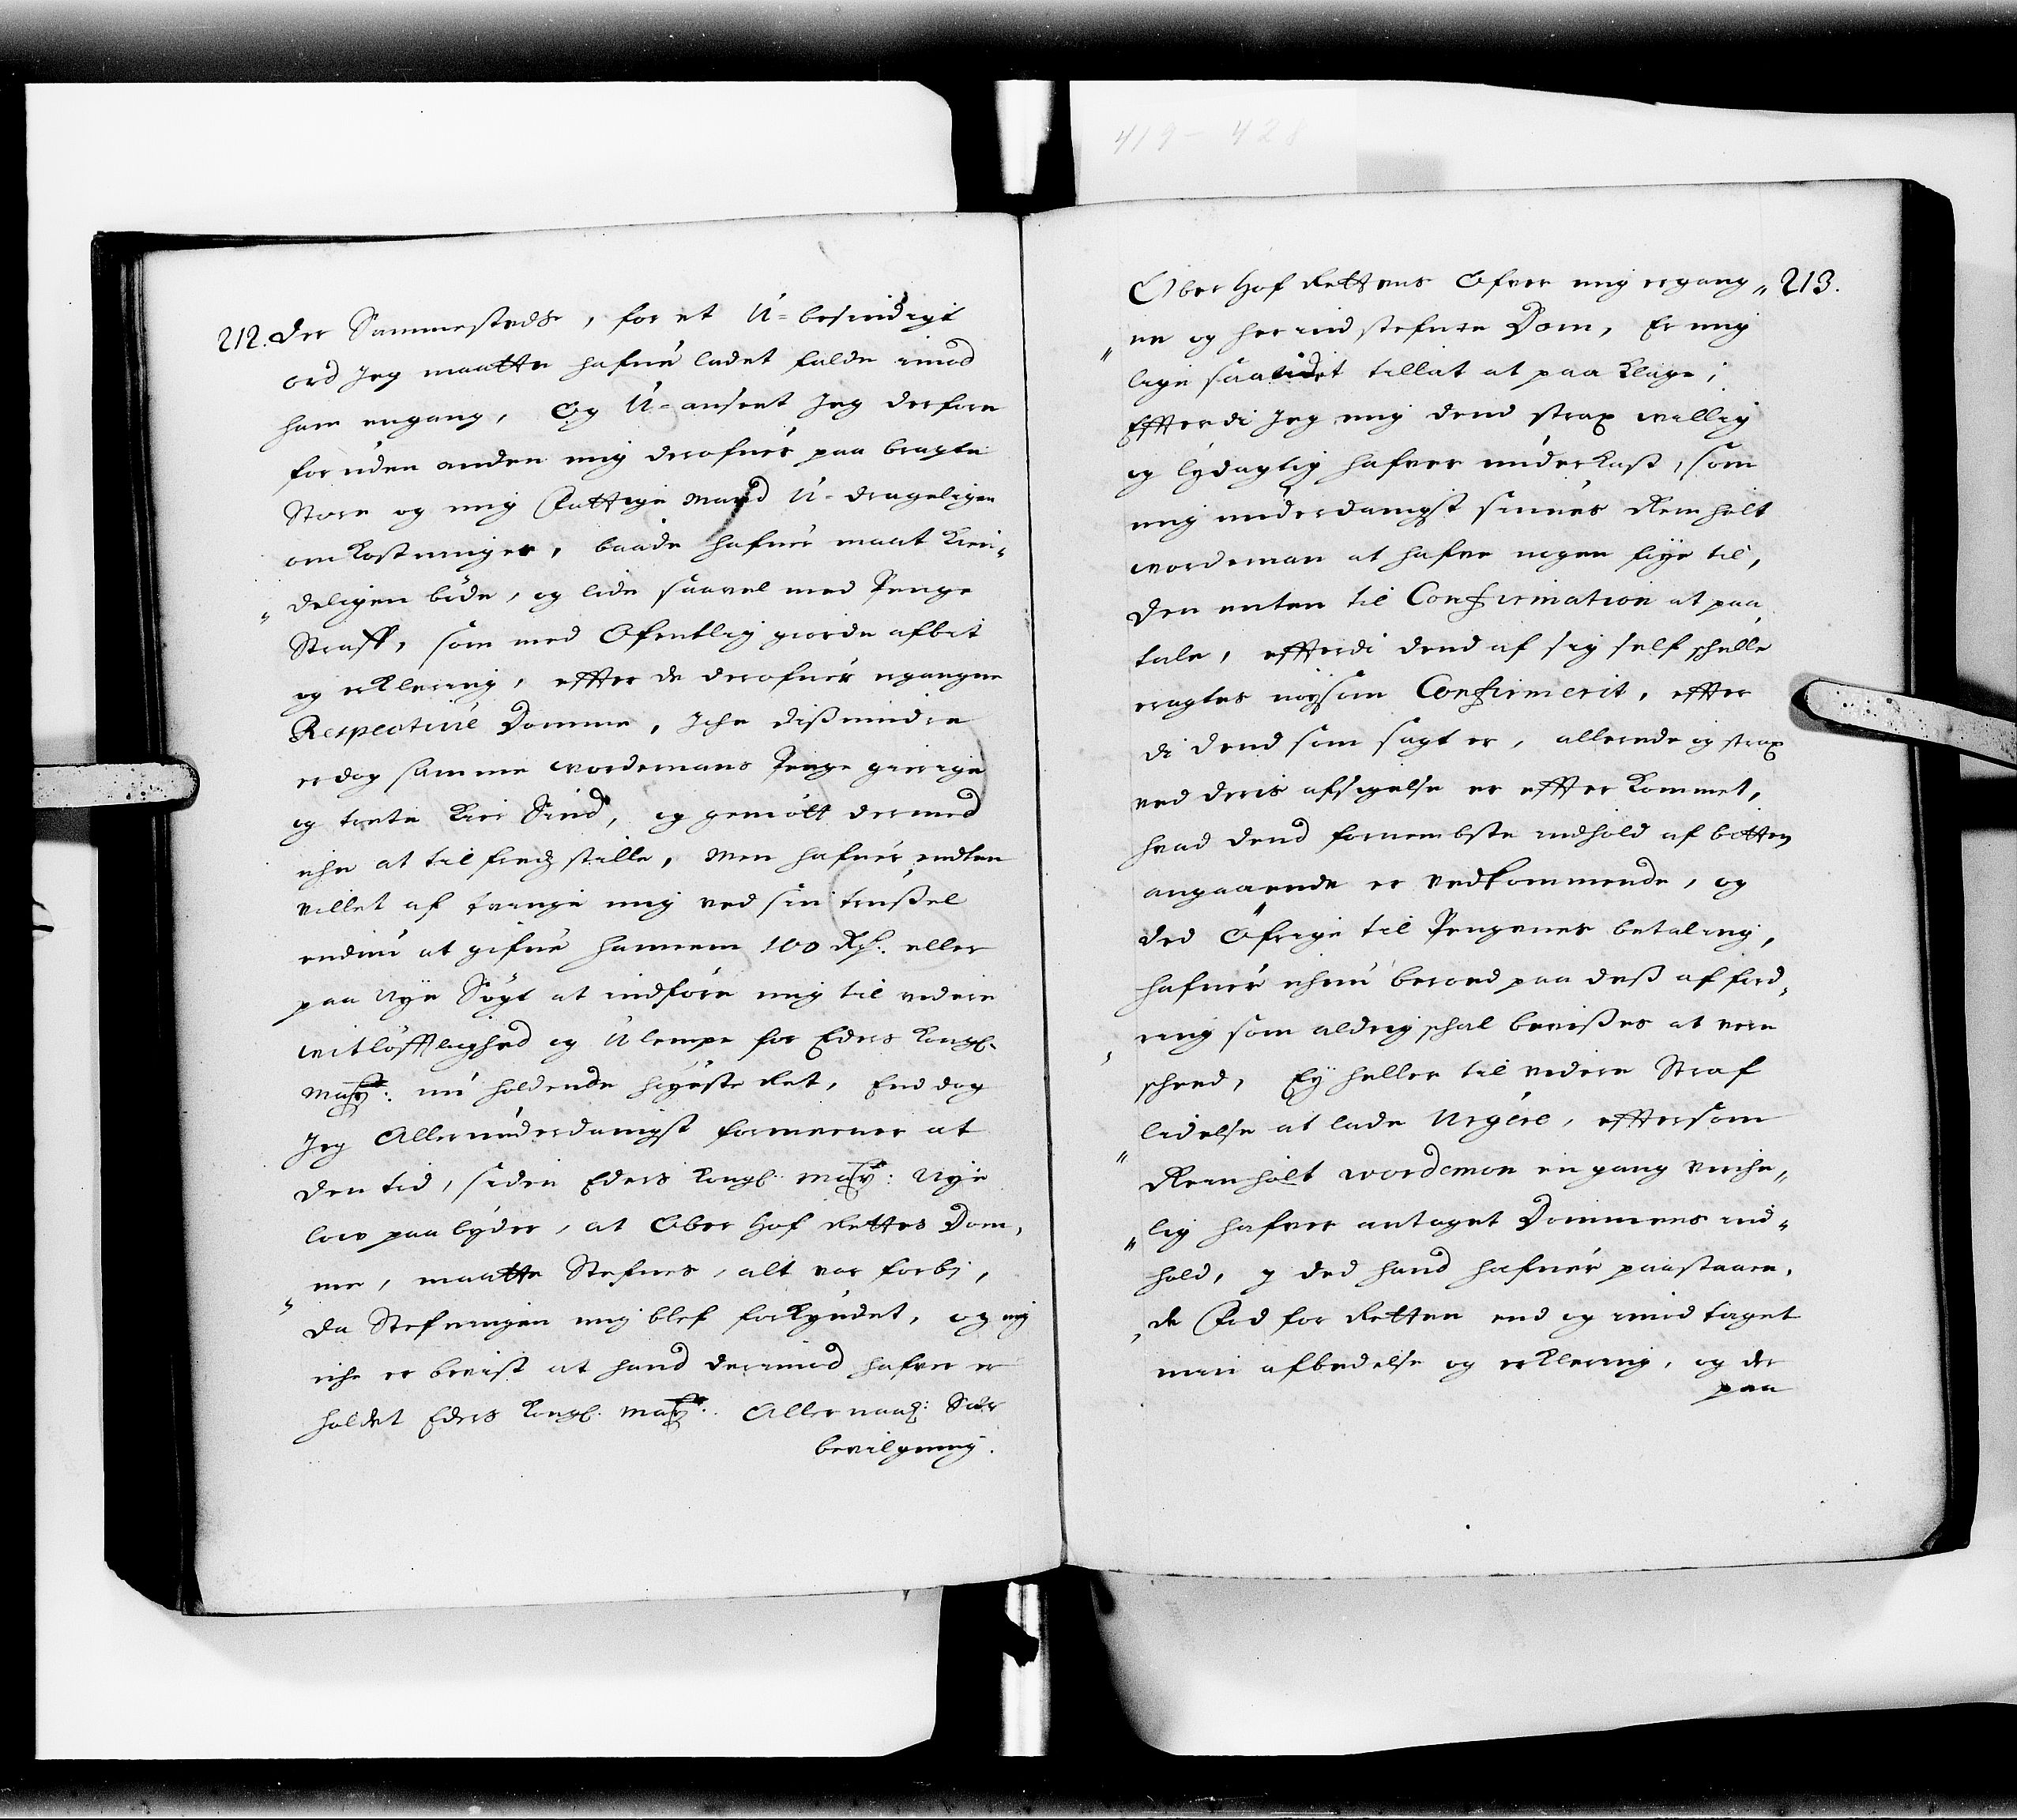 419 - 428
212. der Sammestedtz, for et U-besindigt
ord Jeg maatte hafue ladet falde imod
ham engang, Og U-anseet Jeg derfore
foruden anden mig derofuer paa bragte
Store og mig Fattige Mand U-dragelige
omkostninger, baade hafuer maat kien-
„ deligen böde, og lide saavel med Penge
Straff, som med Ofentlig giorde afbet
og erklering, effter de derofuer ergangne
Respective Domme, Iche dißmindre
er dog samme Wordemans Penge gierige
og trete kier Sind, og gemött dermed
iche at tilfredz stille, Men hafuer endten
villet af tvinge mig ved sin trußel
endnu at gifue hannem 100 Rd. eller
paa Nye Sögt at indföre mig til videre
witlöfftighed og Ulempe for Eders Kongl.
Mayt: nu holdende höyeste Ret, End dog
Jeg Allerunderdanigst formeener at
den tid, siden Eders Kongl. Mayt: Nye
low paabyder, at Ober Hof Rettes Dom-
„ me, maatte Stefnes, alt var forbj,
da Stefningen mig blef forkyndet, og mig
iche er bevist at hand derimod hafuer er
holdet Eders Kongl. Mayt: Allernaad:
bevilgning.
Ober Hof Rettens Ofver mig ergang„ 213.
„ ne og her indstefnte Dom, Er mig
lige saa lidet tillat at paa klage,
Effterdi Jeg mig dend strax willig
og lydagtig hafver underkast, som
mig underdanigst siunes Reinholt
Wordeman at hafve ingen föye til,
den enten til Confirmation at paa
tale, effterdi dend af sig self schulle
eragtes nöysom Confirmerit, effter
di dend som sagt er, allerede og strax
ved deris afsigelse er effterkommet,
hvad dend fornembste indhold af bötter
angaaende er vedkommende, og
ded Öfrige til Pengenes betaling,
hafuer iche beroed paa deß afford-
„ ring som aldrig schal bevißes at vere
scheed, Ey heller til videre Straf
lidelse at lade Urgere, efftersom
„ Reinholt Wordemon en gang virche„
„ lig hafver antaget Dommens ind„
hold, og ded hand hafuer paastaaen,
„ de Fod for Retten end og imod taget
min afbedelse og erklering, og der
paa